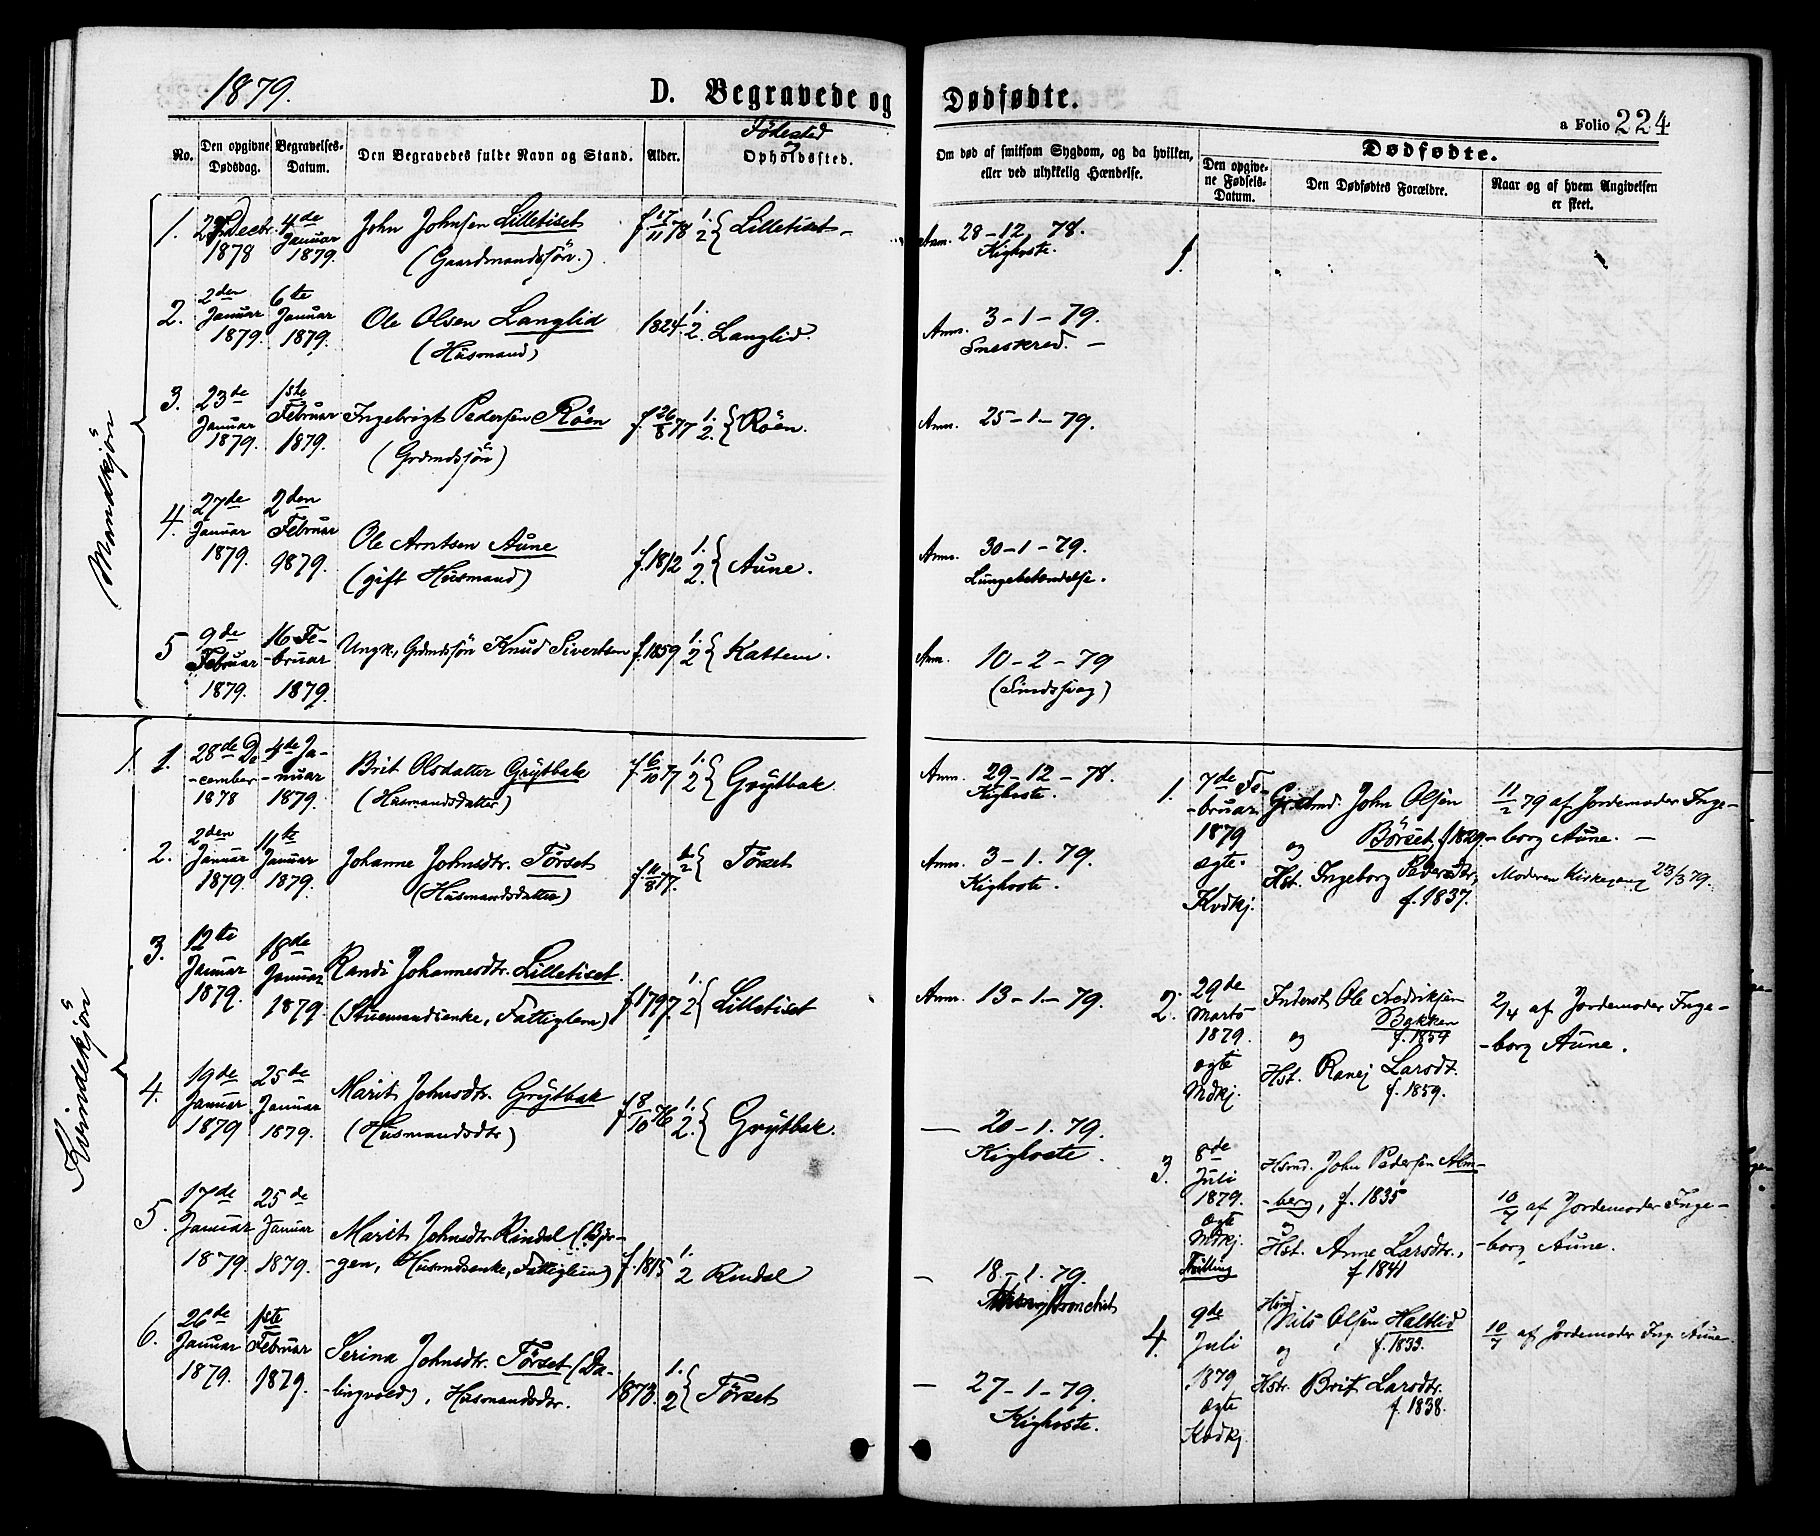 1879.
D. Begravede og Dødfødte.
a Folio 224
No.
Den opgivne Dødsdag.
Begravelses-Datum.
Den Begravedes fulde Navn og Stand.
Alder.
Fødested
Opholdssted.
Om død af smitsom Sygdom, og da hvilken, eller ved ulykkelig Hændelse.
Dødfødte.
Den opgivne Fødsels-Datum.
Den Dødfødtes Forældre.
Naar og af hvem Angivelsen er skeet.
Mandkjön
1. Decbr. 1878 4de Januar 1879. John Johnsen Lilletiset f. 17/11 78 1. 2 { Lilletiset Anm. 28-12 78.
(Gaardmandssön.) Kighoste.
2. 2den Januar 1879. 6te Januar 1879. Ole Olsen Langlid 1824. 1. 2. Langlid. Anm. 3-1-79.
(Husmand) Sneskred.
3. 23de Januar 1879. 1ste Februar 1879. Ingebrigt Pedersen Röen f. 26/8 77 1. 2. { Röen. Anm. 25-1-79.
(Grdmdssön)
4. 27de Januar 1879. 2den Februar 1879. Ole Arntsen Aune f. 1812 1. 2. { Aune. Anm. 30-1-79.
(gift Husmand) Lungebetændelse.
5 9de Februar 1879. 16 Februar 1879. Ungk, Grdmdssön Knud Sivertsen f. 1859 1. 2 { Kattem. Anm. 10-2-79
(Sindssvag)
Kvindekjön
1. 28de December 1878 4de Januar 1879. Brit Olsdatter Grytbak f. 6/10 77 1. 2 { Grytbak Anm. 29-12-78.
(Husmandsdatter) Kighoste.
2. 2den Januar 1879. 11te Januar 1879. Johanne Johnsdtr. Törset f. 11/8 77. 1. 2 { Törset Anm. 3-1.79.
(Husmandsdatter) Kighoste.
3. 12te Januar 1879. 18de Januar 1879. Randi Johannesdtr. Lilletiset. f. 1797. 1. 2 { Lilletiset Anm. 13-1-79.
(Stuemandsenke, Fattiglem)
4. 19de Januar 1879 25de Januar 1879. Marit Johnsdtr. Grytbak f. 8/10 76 1. 2. { Grytbak. — 20-1.79.
(Husmandsdtr) Kighoste.
5. 17de Januar 1879. 25de Januar 1879. Marit Johnsdtr Rindal (Bjør-
-gen, Husmdsenke, Fattiglem) f. 1815 1. 2 Rindal — 18-1.79.
Bronchit
6. 26de Januar 1879. 1ste Februar 1879. Serina Johnsdtr. Törset (Da-
-lingvold), Husmandsdtr. 1878. 1. 2 { Törset — 27-1-79.
Kighoste.
1. 7de Februar 1879 ægte Kvdkj. Grdmd. John Olsen
og Börset, f. 1829.
Hst. Ingeborg Pedersdtr, f. 1837.
11/2 79 af Jordemoder Inge-
-borg Aune. —
Moderen Kirkegang 23/3 79.
2. 29de Marts 1879. ægte Mdkj. Inderst Ole Fredriksen
Bakken f. 1854
og
Hst. Ranej Larsdt. f. 1859.
2/4 af Jordemoder Inge-
-borg Aune.
3. 8de Juli 1879. ægte Mdkj. Tvilling Hsmd. John Pedersen Alm-
-berg, f. 1835
og
Hst. Anne Larsdtr., f 1841
10/7 af Jordemoder Inge-
-borg Aune.
4. 9de Juli 1879 ægte Kvdkj Hsmd Nils Olsen Haltlid
og f. 1833.
Hst. Brit Larsdtr. f. 1838.
10/7 af Jordemoder Ing. Aune.